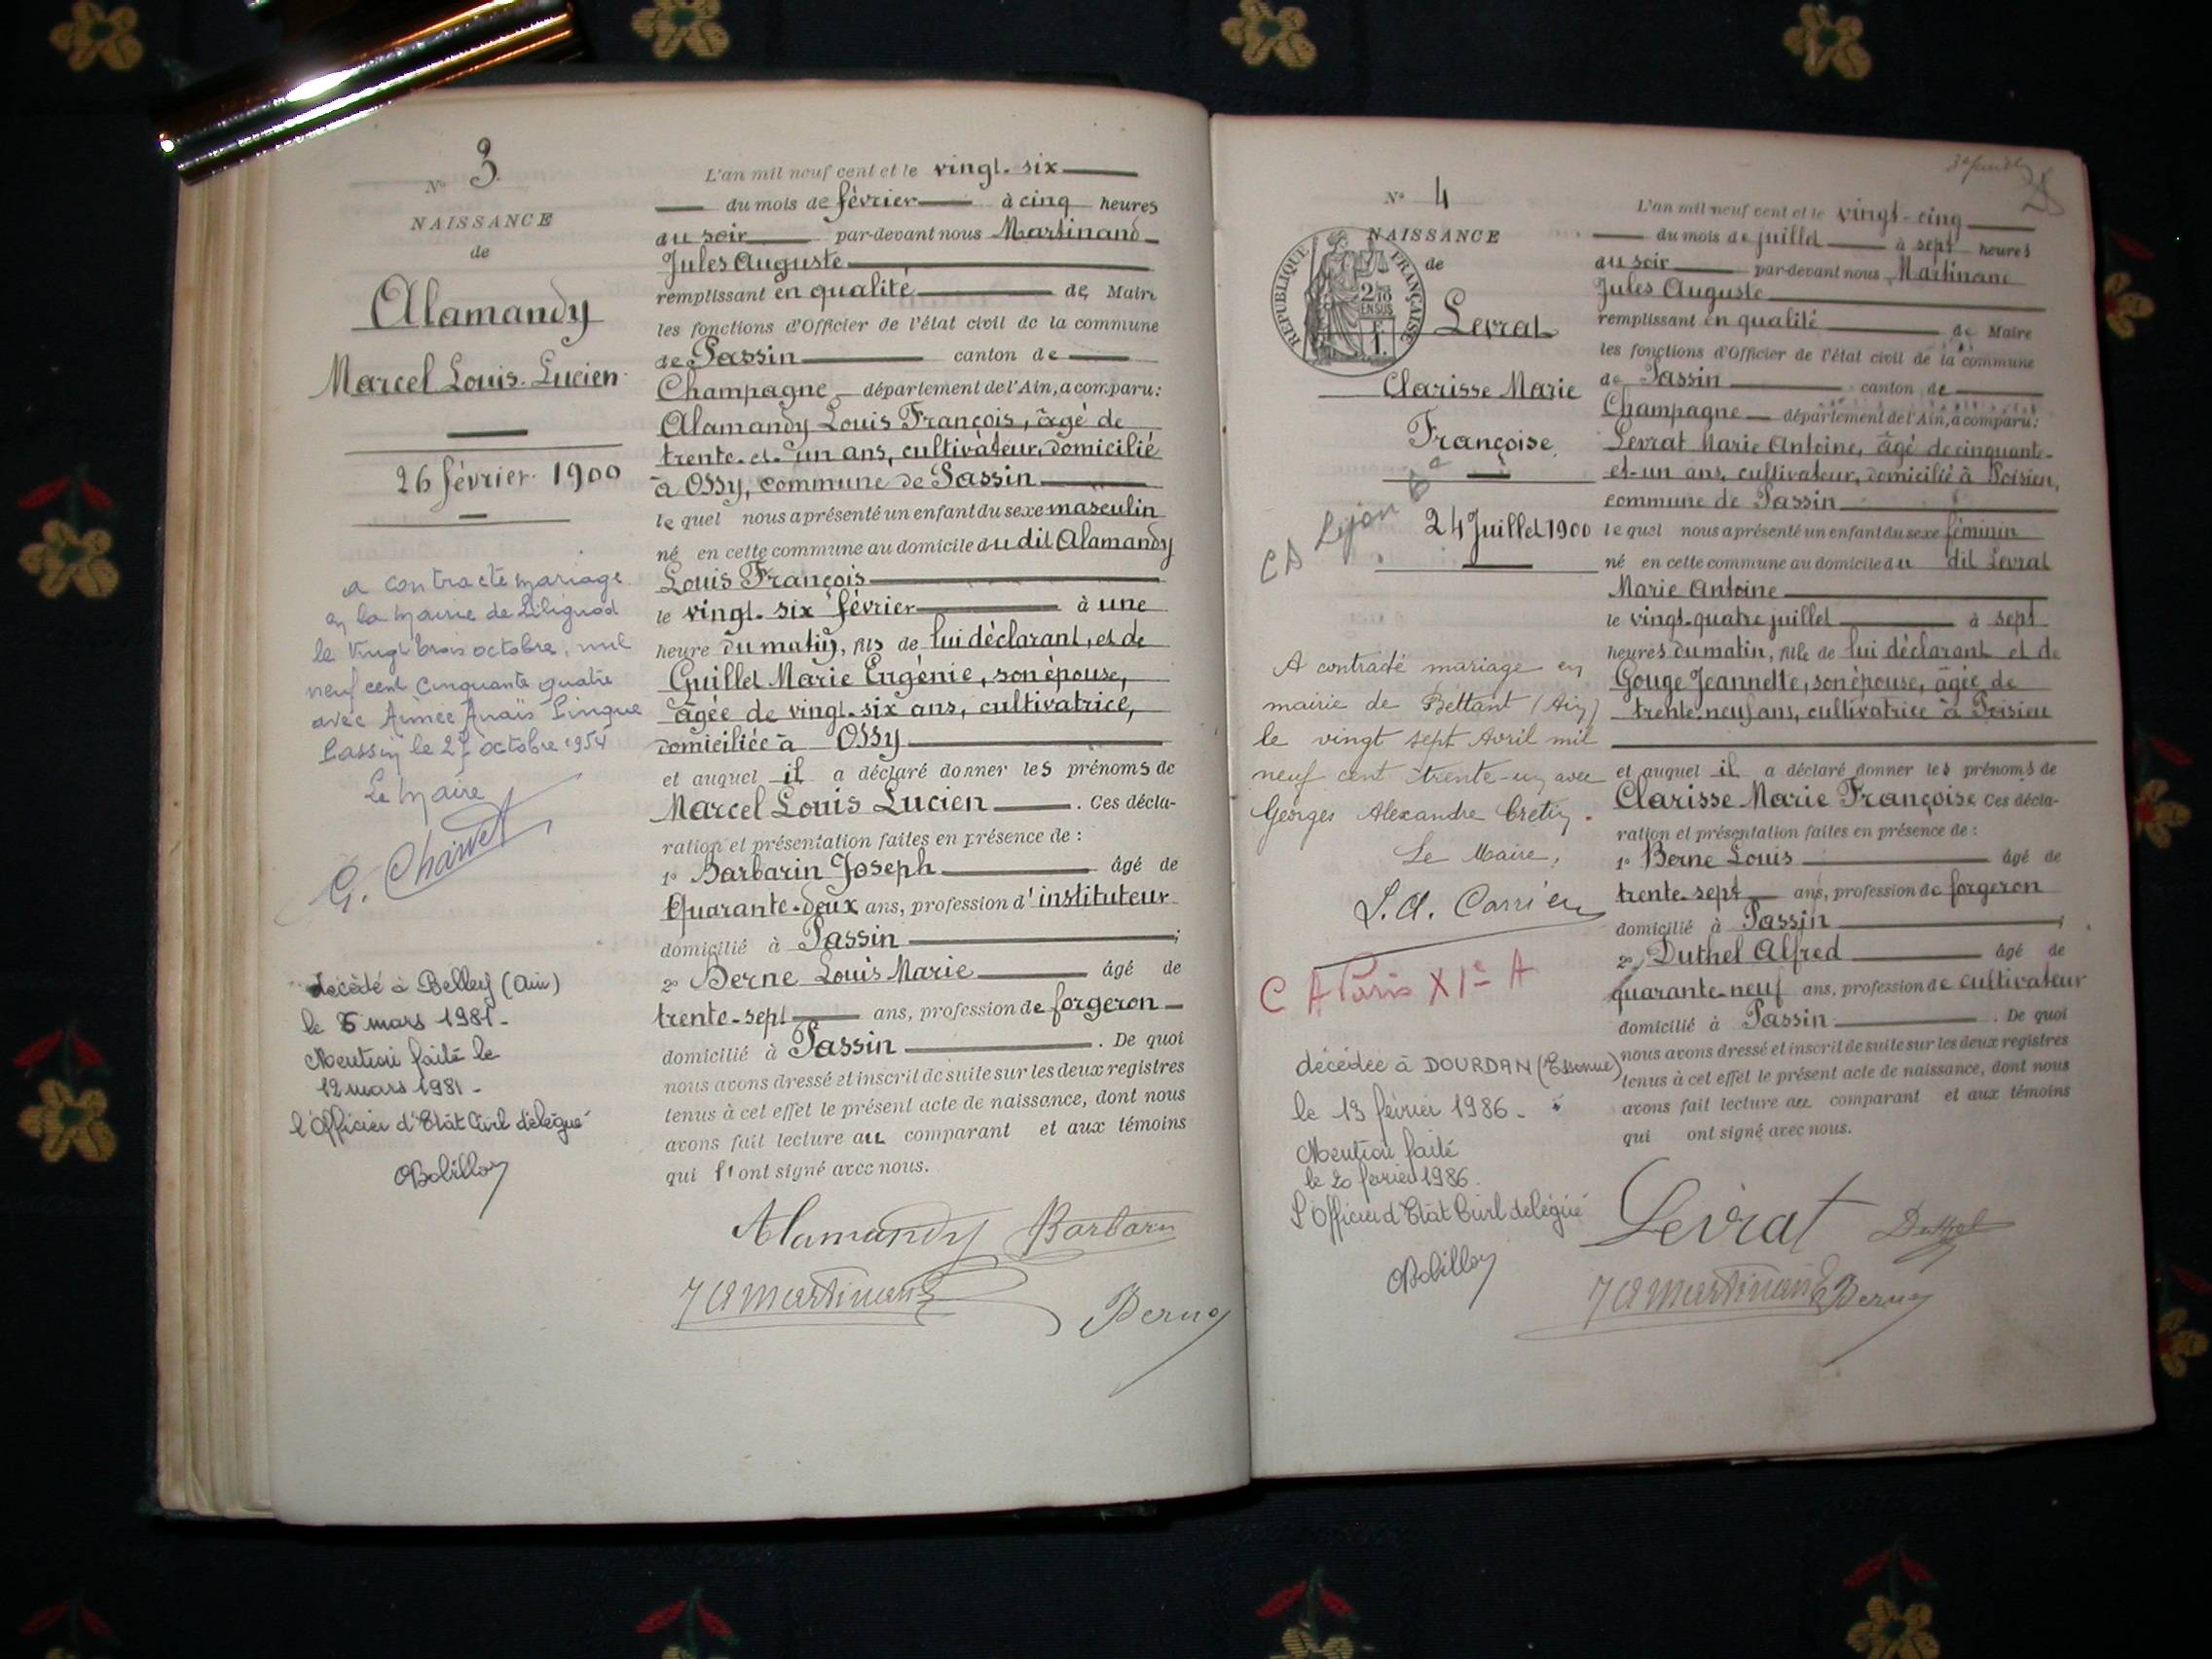 N° 3
NAISSANCE
de
Alamandy
Marcel Louis Lucien
26 février 1900
a contracté mariage
en la mairie de Lilignod
le vingt trois octobre, mil
neuf cent cinquante quatre
avec Aimée Anaïs Pingue
Passin le 27 octobre 1954
Le Maire
G. Charvet
décédé à Belley (Ain)
le 5 mars 1981-
Mention faite le
12 mars 1981-
l'Officier d'Etat Civil délégué
L'an mil neuf cent et le vingt-six
du mois de février à cinq heures
du soir par-devant nous Martinand
Jules Auguste
remplissant en qualité de Maire
les fonctions d'Officier de l'état civil de la commune
de Passin canton de
Champagne département de l'Ain, a comparu:
Alamandy Louis François, âgé de
trente-et-un ans, cultivateur, domicilié
à Ossy, commune de Passin
lequel nous a présenté un enfant du sexe masculin
né en cette commune au domicile du dit Alamandy
Louis François
le vingt-six février à une
heure du matin, fils de lui déclarant, et de
Guillet Marie Eugénie, son épouse,
âgée de vingt-six ans, cultivatrice,
domiciliée à Ossy
et auquel il a déclaré donner les prénoms de
Marcel Louis Lucien. Ces décla-
ration et présentation faites en présence de :
1° Barbarin Joseph âgé de
Quarante-deux ans, profession d'instituteur
domicilié à Passin ;
2° Berne Louis Marie âgé de
trente-sept ans, profession de forgeron
domicilié à Passin. De quoi
nous avons dressé et inscrit de suite sur les deux registres
tenus à cet effet le présent acte de naissance, dont nous
avons fait lecture au comparant et aux témoins
qui l'ont signé avec nous.
Alamandy Barbarin
JA Martinand
Berne
N° 4
NAISSANCE
de
REPUBLIQUE FRANÇAISE
2/10
EN SUS
Levrat
Clarisse Marie
Françoise
24 Juillet 1900
CA Lyon
A contracté mariage en
mairie de Bettant (Ain)
le vingt sept Avril mil
neuf cent trente-un avec
Georges Alexandre Cretin.
Le Maire,
C A Paris XIe A
décédée à DOURDAN (Essonne)
le 13 février 1986-
Mention faite
le 20 février 1986.
l'Officier d'Etat Civil délégué
L'an mil neuf cent et le vingt-cinq
du mois de juillet à sept heures
du soir par-devant nous Martinand
Jules Auguste
remplissant en qualité de Maire
les fonctions d'Officier de l'état civil de la commune
de Passin canton de
Champagne département de l'Ain, a comparu:
Levrat Marie Antoine, âgé de cinquante-
et-un ans, cultivateur, domicilié à Poisieu,
commune de Passin
lequel nous a présenté un enfant du sexe féminin
né en cette commune au domicile du dit Levrat
Marie Antoine
le vingt-quatre juillet à sept
heures du matin, fille de lui déclarant et de
Gouge Jeannette, son épouse, âgée de
trente-neuf ans, cultivatrice à Poisieu
et auquel il a déclaré donner les prénoms de
Clarisse Marie Françoise Ces décla-
ration et présentation faites en présence de :
1° Berne Louis âgé de
trente-sept ans, profession de forgeron
domicilié à Passin ;
2° Duthel Alfred âgé de
quarante-neuf ans, profession de cultivateur
domicilié à Passin. De quoi
nous avons dressé et inscrit de suite sur les deux registres
tenus à cet effet le présent acte de naissance, dont nous
avons fait lecture au comparant et aux témoins
qui ont signé avec nous.
Levrat Duthel
JA Martinand Berne